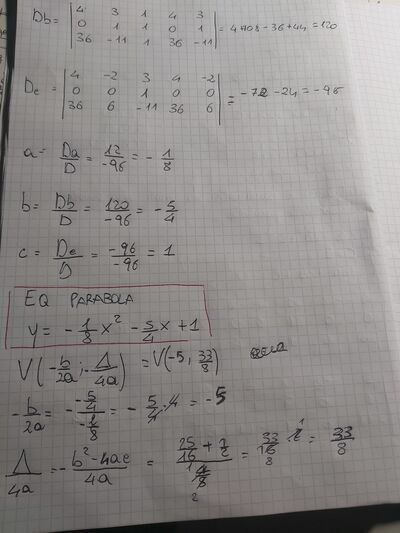 Db = | 4 3 1 4 3 |
| 0 1 1 0 1 | = 4+108-36+44 = 120
| 36 -11 1 36 -11 |
Dc = | 4 -2 3 4 -2 |
| 0 0 1 0 0 | = -72 -24 = -96
| 36 6 -11 36 6 |
a = Da/D = 12/-96 = - 1/8
b = Db/D = 120/-96 = - 5/4
c = Dc/D = -96/-96 = 1
EQ PARABOLA
y = - 1/8 x² - 5/4 x + 1
V(- b/2a ; - Δ/4a) = V(-5, 33/8)
- b/2a = - -5/4 / -1/8 = - 5/4 · 4 = -5
Δ/4a = - b²-4ac / 4a = 25/16 + 1/2 / 4/8 = 33/16 · 2 = 33/8